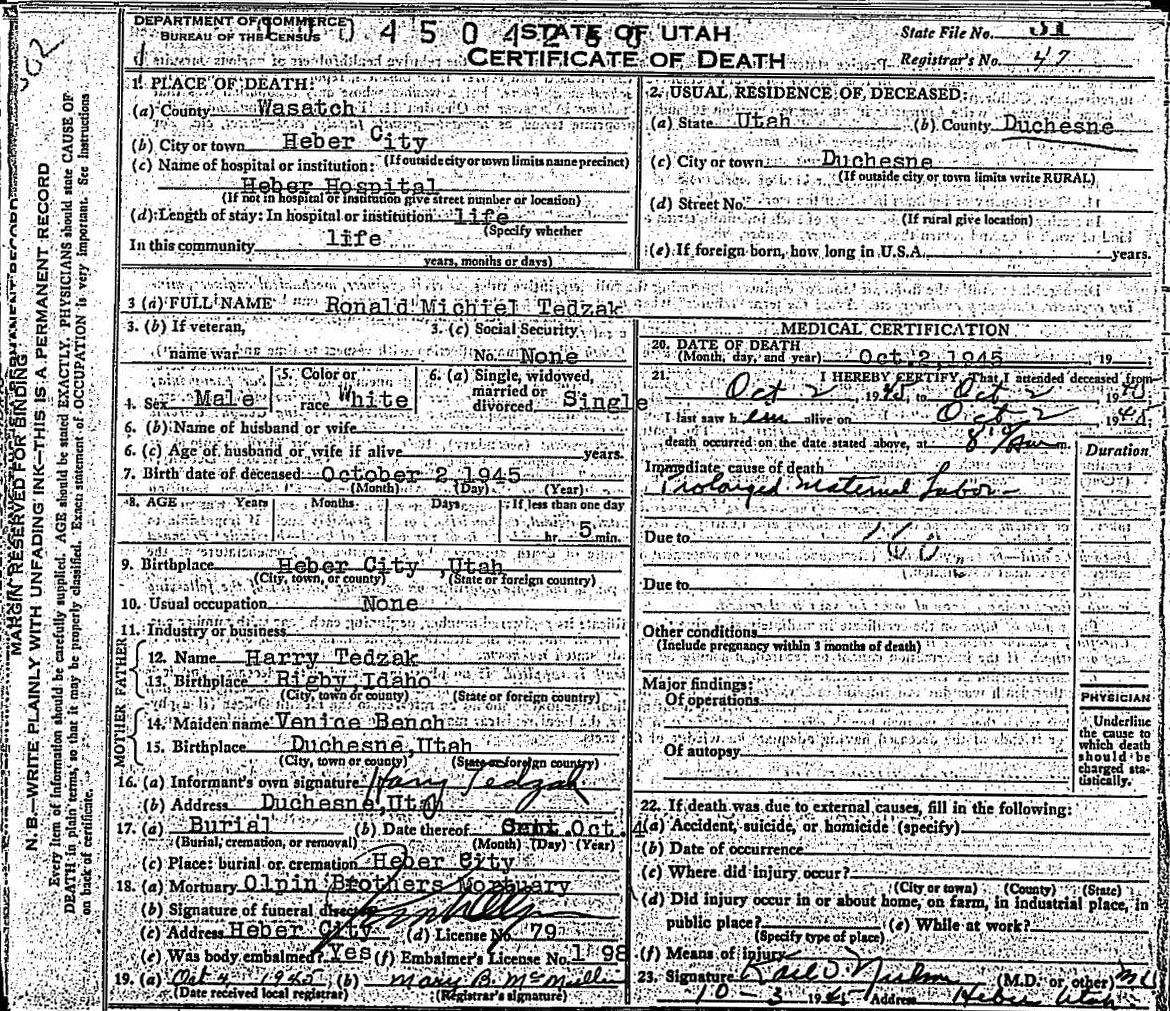 DEPARTMENT OF COMMERCE
BUREAU OF THE CENSUS
STATE OF UTAH
CERTIFICATE OF DEATH
State File No. 51
Registrar's No. 47
MARGIN RESERVED FOR BINDING
N. B.—WRITE PLAINLY WITH UNFADING INK—THIS IS A PERMANENT RECORD
Every item of information should be carefully supplied. AGE should be stated EXACTLY. PHYSICIANS should state CAUSE OF
DEATH in plain terms, so that it may be properly classified. Exact statement of OCCUPATION is very important. See Instructions
on back of certificate.
1. PLACE OF DEATH:
(a) County Wasatch
(b) City or town Heber City
(If outside city or town limits name precinct)
(c) Name of hospital or institution:
Heber Hospital
(If not in hospital or institution give street number or location)
(d) Length of stay: In hospital or institution life
(Specify whether
In this community life
years, months or days)
2. USUAL RESIDENCE OF DECEASED:
(a) State Utah (b) County Duchesne
(c) City or town Duchesne
(If outside city or town limits write RURAL)
(d) Street No.
(If rural give location)
(e) If foreign born, how long in U.S.A. years.
3 (a) FULL NAME Ronald Michiel Tedzak
3. (b) If veteran,
name war
3. (c) Social Security
No. None
4. Sex Male
5. Color or
race White
6. (a) Single, widowed,
married or
divorced Single
6. (b) Name of husband or wife
6. (c) Age of husband or wife if alive years.
7. Birth date of deceased October 2 1945
(Month) (Day) (Year)
8. AGE Years Months Days If less than one day
hr. 5 min.
9. Birthplace Heber City, Utah
(City, town, or county) (State or foreign country)
10. Usual occupation None
11. Industry or business
FATHER
12. Name Harry Tedzak
13. Birthplace Rigby Idaho
(City, town or county) (State or foreign country)
MOTHER
14. Maiden name Venice Bench
15. Birthplace Duchesne, Utah
(City, town or county) (State or foreign country)
16. (a) Informant's own signature Harry Tedzak
(b) Address Duchesne, Utah
17. (a) Burial (b) Date thereof Oct. 4
(Burial, cremation, or removal) (Month) (Day) (Year)
(c) Place: burial or cremation Heber City
18. (a) Mortuary Olpin Brothers Mortuary
(b) Signature of funeral director
(c) Address Heber City (d) License No. 79
(e) Was body embalmed? Yes (f) Embalmer's License No. 198
19. (a) Oct 4, 1945 (b) Mary B. McMullin
(Date received local registrar) (Registrar's signature)
MEDICAL CERTIFICATION
20. DATE OF DEATH
(Month, day, and year) Oct.2,1945, 19
21. I HEREBY CERTIFY, That I attended deceased from
Oct 2, 1945, to Oct 2 1945
I last saw him alive on Oct 2 1945
death occurred on the date stated above, at m.
Duration
Immediate cause of death
Prolonged Maternal Labor—
Due to
Due to
Other conditions
(Include pregnancy within 3 months of death)
Major findings:
Of operations
Of autopsy
PHYSICIAN
Underline
the cause to
which death
should be
charged sta-
tistically.
22. If death was due to external causes, fill in the following:
(a) Accident, suicide, or homicide (specify)
(b) Date of occurrence
(c) Where did injury occur?
(City or town) (County) (State)
(d) Did injury occur in or about home, on farm, in industrial place, in
public place? (e) While at work?
(Specify type of place)
(f) Means of injury
23. Signature (M.D. or other) MD
10-3 1945 Address Heber Utah